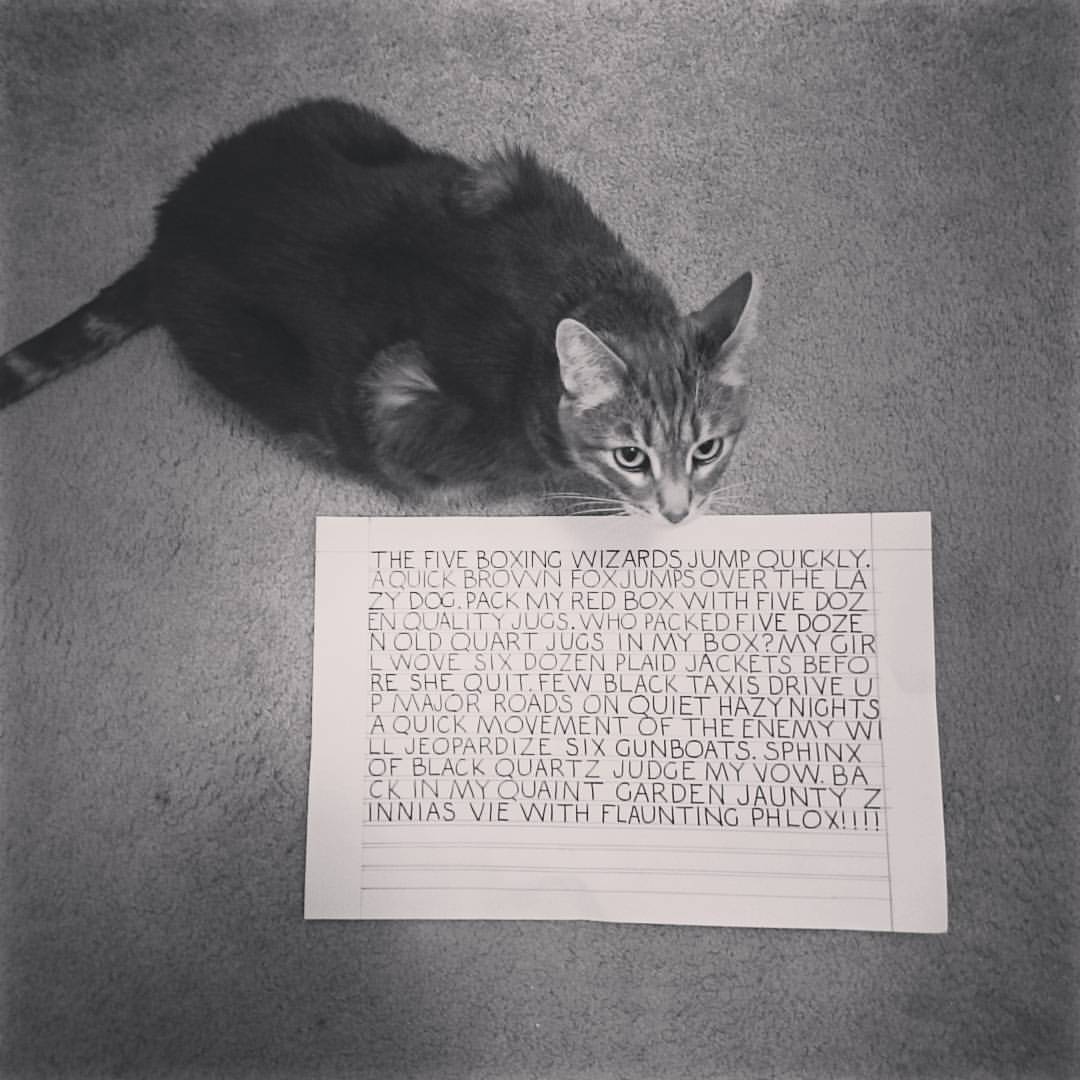 THE FIVE BOXING WIZARDS JUMP QUICKLY.
A QUICK BROWN FOX JUMPS OVER THE LA
ZY DOG. PACK MY RED BOX WITH FIVE DOZ
EN QUALITY JUGS. WHO PACKED FIVE DOZE
N OLD QUART JUGS IN MY BOX? MY GIR
L WOVE SIX DOZEN PLAID JACKETS BEFO
RE SHE QUIT. FEW BLACK TAXIS DRIVE U
P MAJOR ROADS ON QUIET HAZY NIGHTS
A QUICK MOVEMENT OF THE ENEMY WI
LL JEOPARDIZE SIX GUNBOATS. SPHINX
OF BLACK QUARTZ JUDGE MY VOW. BA
CK IN MY QUAINT GARDEN JAUNTY Z
INNIAS VIE WITH FLAUNTING PHLOX!!!!